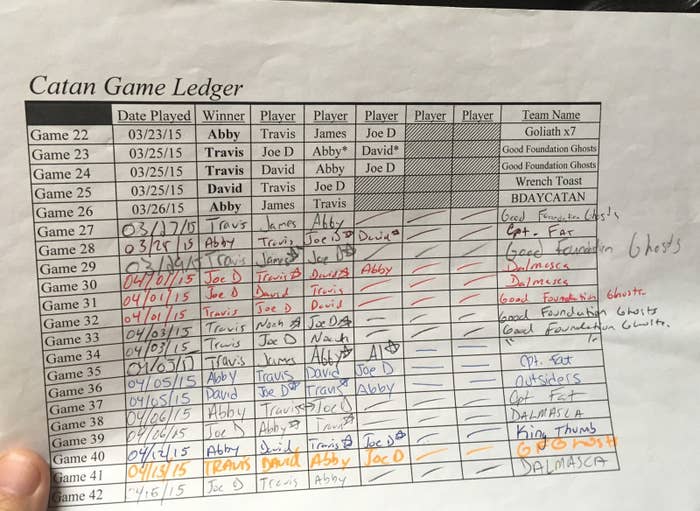 Catan Game Ledger
Date Played Winner Player Player Player Player Player Team Name
Game 22 03/23/15 Abby Travis James Joe D Goliath x7
Game 23 03/25/15 Travis Joe D Abby* David* Good Foundation Ghosts
Game 24 03/25/15 Travis David Abby Joe D Good Foundation Ghosts
Game 25 03/25/15 David Travis Joe D Wrench Toast
Game 26 03/26/15 Abby James Travis BDAYCATAN
Game 27 03/27/15 Travis James Abby Good Foundation Ghosts
Game 28 03/28/15 Abby Travis Joe D David Cpt. Fat
Game 29 03/29/15 Travis James Joe D Good foundation Ghosts
Game 30 04/01/15 Joe D Travis David Abby Dalmasca
Game 31 04/01/15 Joe D David Travis Dalmasca
Game 32 04/01/15 Travis Joe D David Good Foundation Ghosts
Game 33 04/03/15 Travis Noah Joe D Good Foundation Ghosts
Game 34 04/03/15 Travis Joe D Noah Good Foundation Ghosts
Game 35 Travis James Abby Al " "
Game 36 04/05/15 Abby Travis David Joe D Cpt. Fat
Game 37 04/05/15 David Joe D Travis Abby Outsiders
Game 38 04/06/15 Abby Travis Joe D Cpt Fat
Game 39 04/06/15 Joe D Abby Travis DALMASCA
Game 40 04/12/15 Abby David Travis Joe D King Thumb
Game 41 04/13/15 TRAVIS DAVID Abby Joe D G F Ghosts
Game 42 Joe D Travis Abby DALMASCA